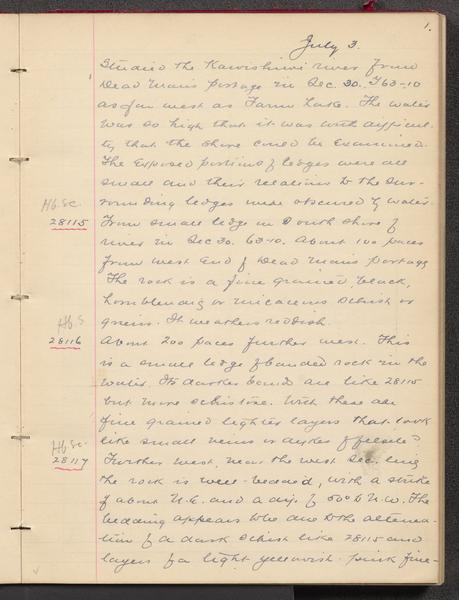 1.
July 3.
Studied the Kawishiwi river from
Dead Man's Portage in Sec. 30. T63-10
as far west as Farm Lake. The water
was so high that it was with difficul-
ty that the shore could be examined.
The exposed portions of ledges were all
small and their relations to the sur-
rounding ledges were obscured by water.
Hb. Sc.
28115
From small ledge on South shore of
river in Sec 30. 63-10. About 100 paces
from west end of Dead Man's Portage
The rock is a fine grained black,
hornblendic or micaceous schist or
gneiss. It weathers reddish.
Hb. S
28116
About 200 paces further west. This
is a small ledge of banded rock in the
water. Its darker bands are like 28115
but more schistose. With these are
fine grained lighter layers that look
like small veins or dykes of felsite?
Hb Sc.
28117
Further west, near the west Sec. line
the rock is well-banded, with a strike
of about N.E. and a dip of 50° to N.W. The
bedding appears to be due to the alterna-
tion of a dark schist like 28115 and
layers of a light yellowish pink fine-